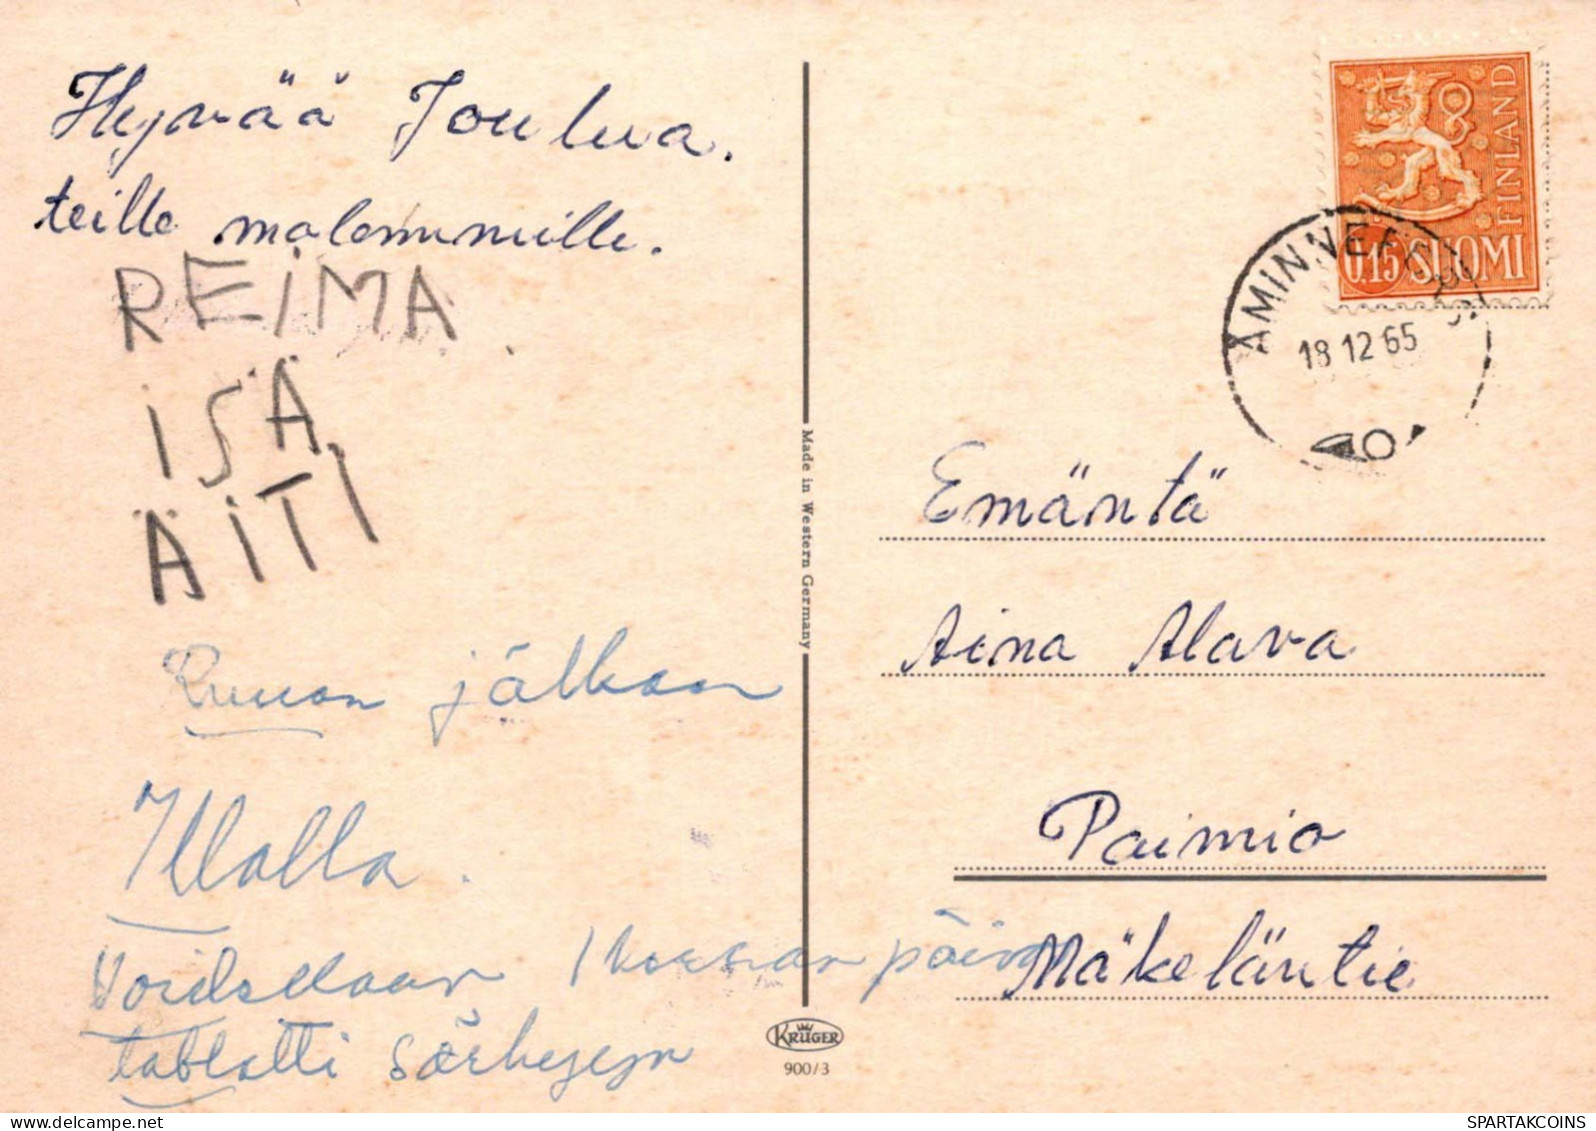 Hyvää Joulua.
teille molemmille.
REIMA
ISÄ
ÄITI
Ruuan jälkeen
Illalla.
Voidellaan 1 kerran päivä
tabletti särkyyn
Made in Western Germany
KRÜGER
900/3
FINLAND
0.15 SUOMI
ÄMINNEFORS
18 12 65
Emäntä
Aina Alava
Paimio
Mäkeläntie
SPARTAKCOINS
hosting by delcampe.net
SPARTAKCOINS.COM